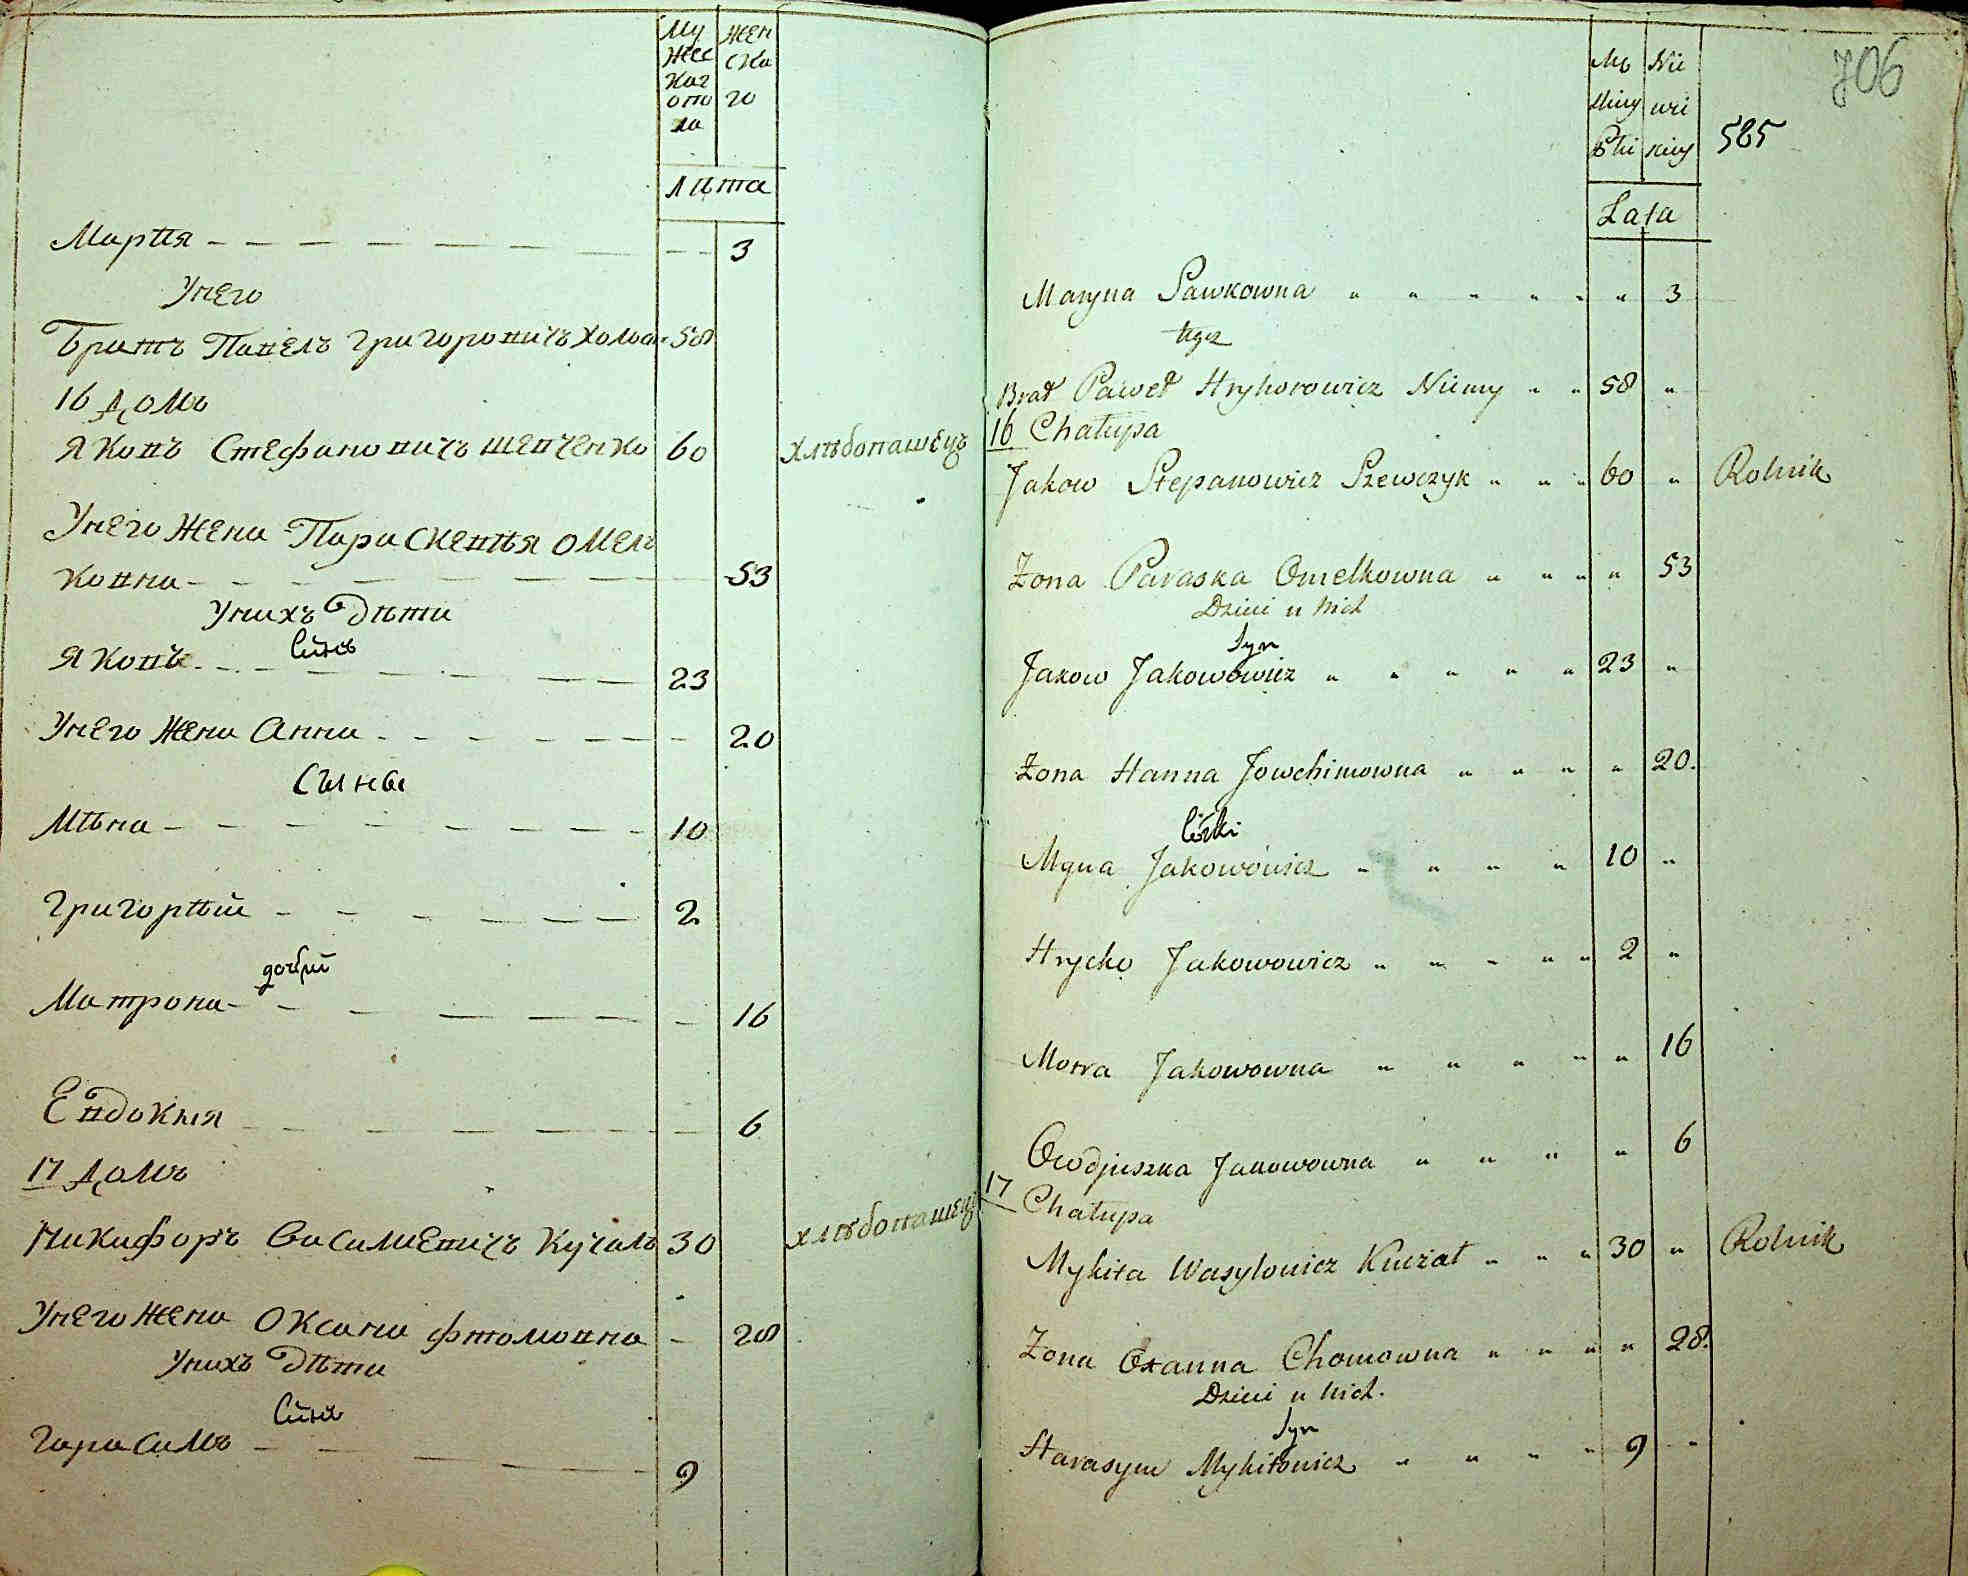 Му Жен
жес ска
ког го
опо
ла
Лѣта
Марія 3
У него
Братъ Павелъ Григоровичъ 58
16 Домъ
Яковъ Стефановичъ Шевченко 60 хлѣбопашецъ
У него жена Параскевія Омель
ковна 53
У нихъ дѣти
Сынъ
Яковъ 23
У него жена Анна 20
Сыны
Міна 10
Григорій 2
дочери
Матрона 16
Евдокія 6
17 Домъ
Никифоръ Василиевичъ Кучалъ 30 хлѣбопашецъ
У него жена Оксана Фтомовна 28
У нихъ дѣти
Сынъ
Гарасимъ 9
706
585
Lata
Maryna Pawkowna " " " " " " 3
tegoż
Brat Paweł Hryhorowicz Niemy " " 58 "
16 Chałupa
Jakow Stepanowicz Szewczyk " " " 60 " Rolnik
Żona Paraska Omelkowna " " " " 53
Dzieci u nich
Syn
Jakow Jakowowicz " " " " " 23 "
Żona Hanna Jowchimowna " " " " 20.
Myna Jakowowicz " " " " 10 "
Hrycko Jakowowicz " " " " " 2 "
Motra Jakowowna " " " " " 16
Owdjuszka Jakowowna " " " " 6
17
Chałupa
Mykita Wasylowicz Kuczał " " " 30 " Rolnik
Żona Oxanna Chomowna " " " " 28.
Dzieci u nich.
Syn
Harasym Mykitowicz " " " " 9 "